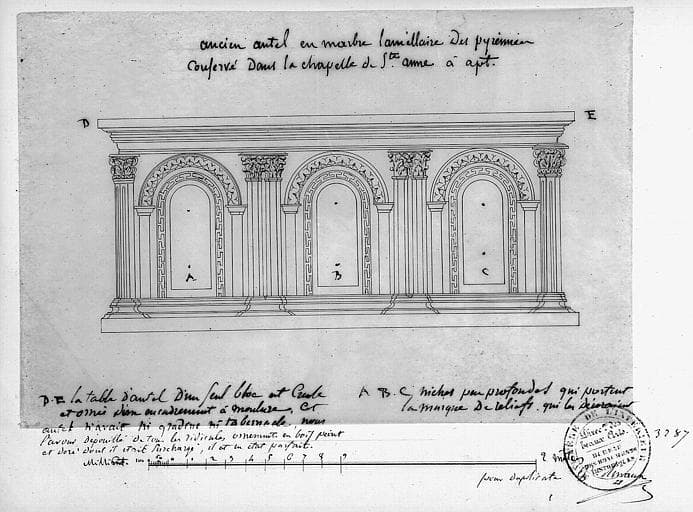 ancien autel en marbre lamellaire des pyrénnées
conservé Dans la chapelle de Ste anne à apt.
D E
A B C
D.E la table D'autel D'un seul bloc est
et ornée D'un encadrement à moulure, Cet
autel n'avait ni gradins ni tabernacle, nous
l'avons dépouillé de tous les ridicules ornements en bois peint
et doré dont il était surchargé, il est en état parfait.
A B. C, niches peu profondes qui portent
la marque De reliefs, qui les Décoraient
1 2 3 4 5 6 7 8 9 2 mètres
pour duplicata
3787